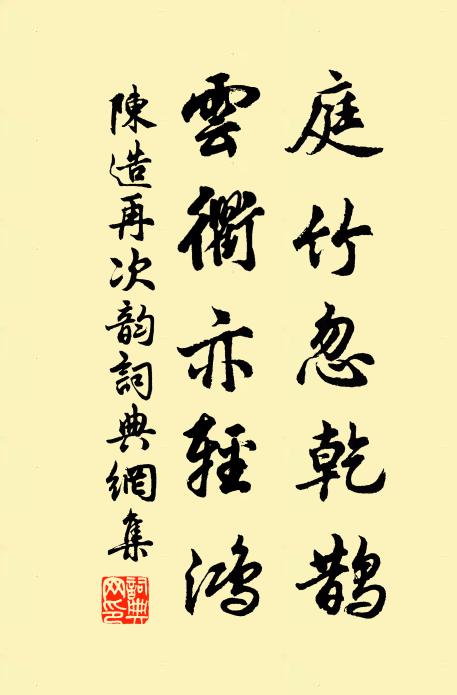 庭竹忽乾鵲
雲衢亦輕鴻
陳造再次韵詞典網集
詞典網印